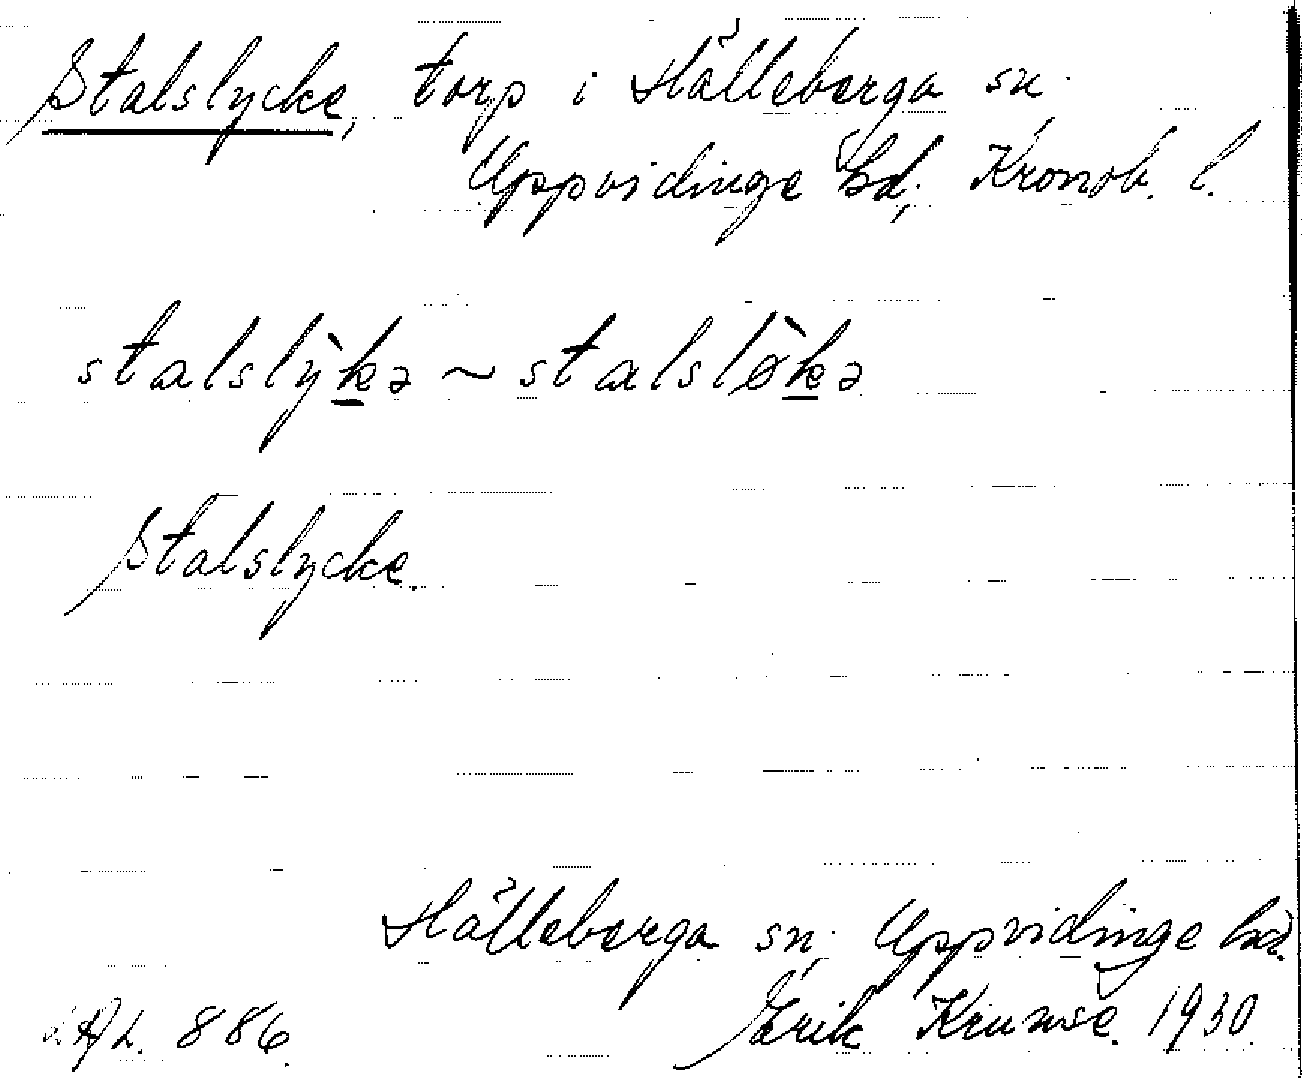 Stalslycke, torp i Hälleberga sn.
Uppvidinge hd, Kronob. l.
stalslỳkə ~ stalslø̀kə
Stalslycke.
Hälleberga sn. Uppvidinge hd.
Erik 1930.
886.